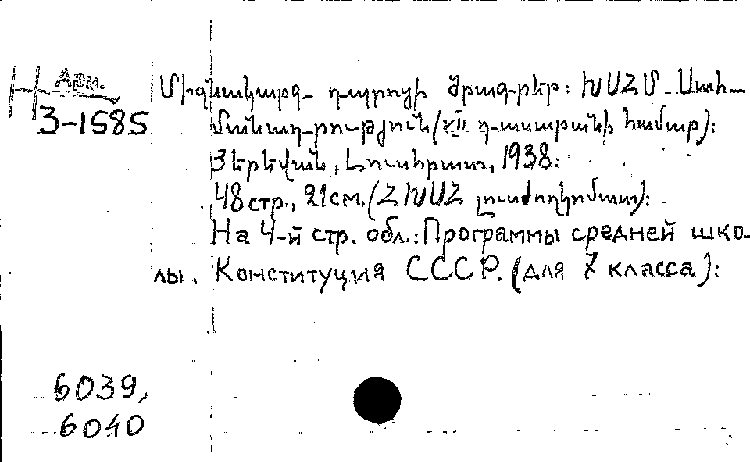 Арм.
3-1585
Միջնակարգ դպրոցի ծրագրեր: ԽՍՀՄ Սահ-
մանադրություն (VII դասարանի համար):
Յերեվան, Լուսհրատ, 1938:
48 стр., 21см. (ՀԽՍՀ լուսժողկոմատ):
На 4-й стр. обл.: Программы средней шко-
лы. Конституция СССР. (для 7 класса):
6039,
6040